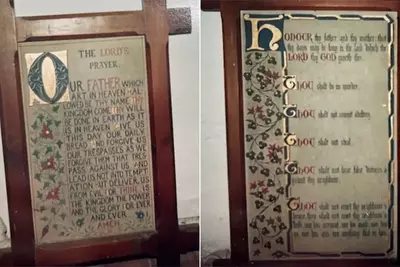 THE LORD'S
PRAYER.
OUR FATHER WHICH
ART IN HEAVEN HAL-
LOWED BE THY NAME THY
KINGDOM COME THY WILL
BE DONE IN EARTH AS IT
IS IN HEAVEN GIVE US
THIS DAY OUR DAILY
BREAD AND FORGIVE US
OUR TRESPASSES AS WE
FORGIVE THEM THAT TRES-
PASS AGAINST US AND
LEAD US NOT INTO TEMPT
ATION BUT DELIVER US
FROM EVIL FOR THINE IS
THE KINGDOM THE POWER
AND THE GLORY FOR EVER
AND EVER
AMEN
Honour thy father and thy mother: that
thy days may be long in the land which the
LORD thy GOD giveth thee.
Thou shalt do no murder.
Thou shalt not commit adultery.
Thou shalt not steal.
Thou shalt not bear false witness
against thy neighbour.
Thou shalt not covet thy neighbour's
house, thou shalt not covet thy neighbour's
wife, nor his servant, nor his maid, nor his
ox, nor his ass, nor anything that is his.